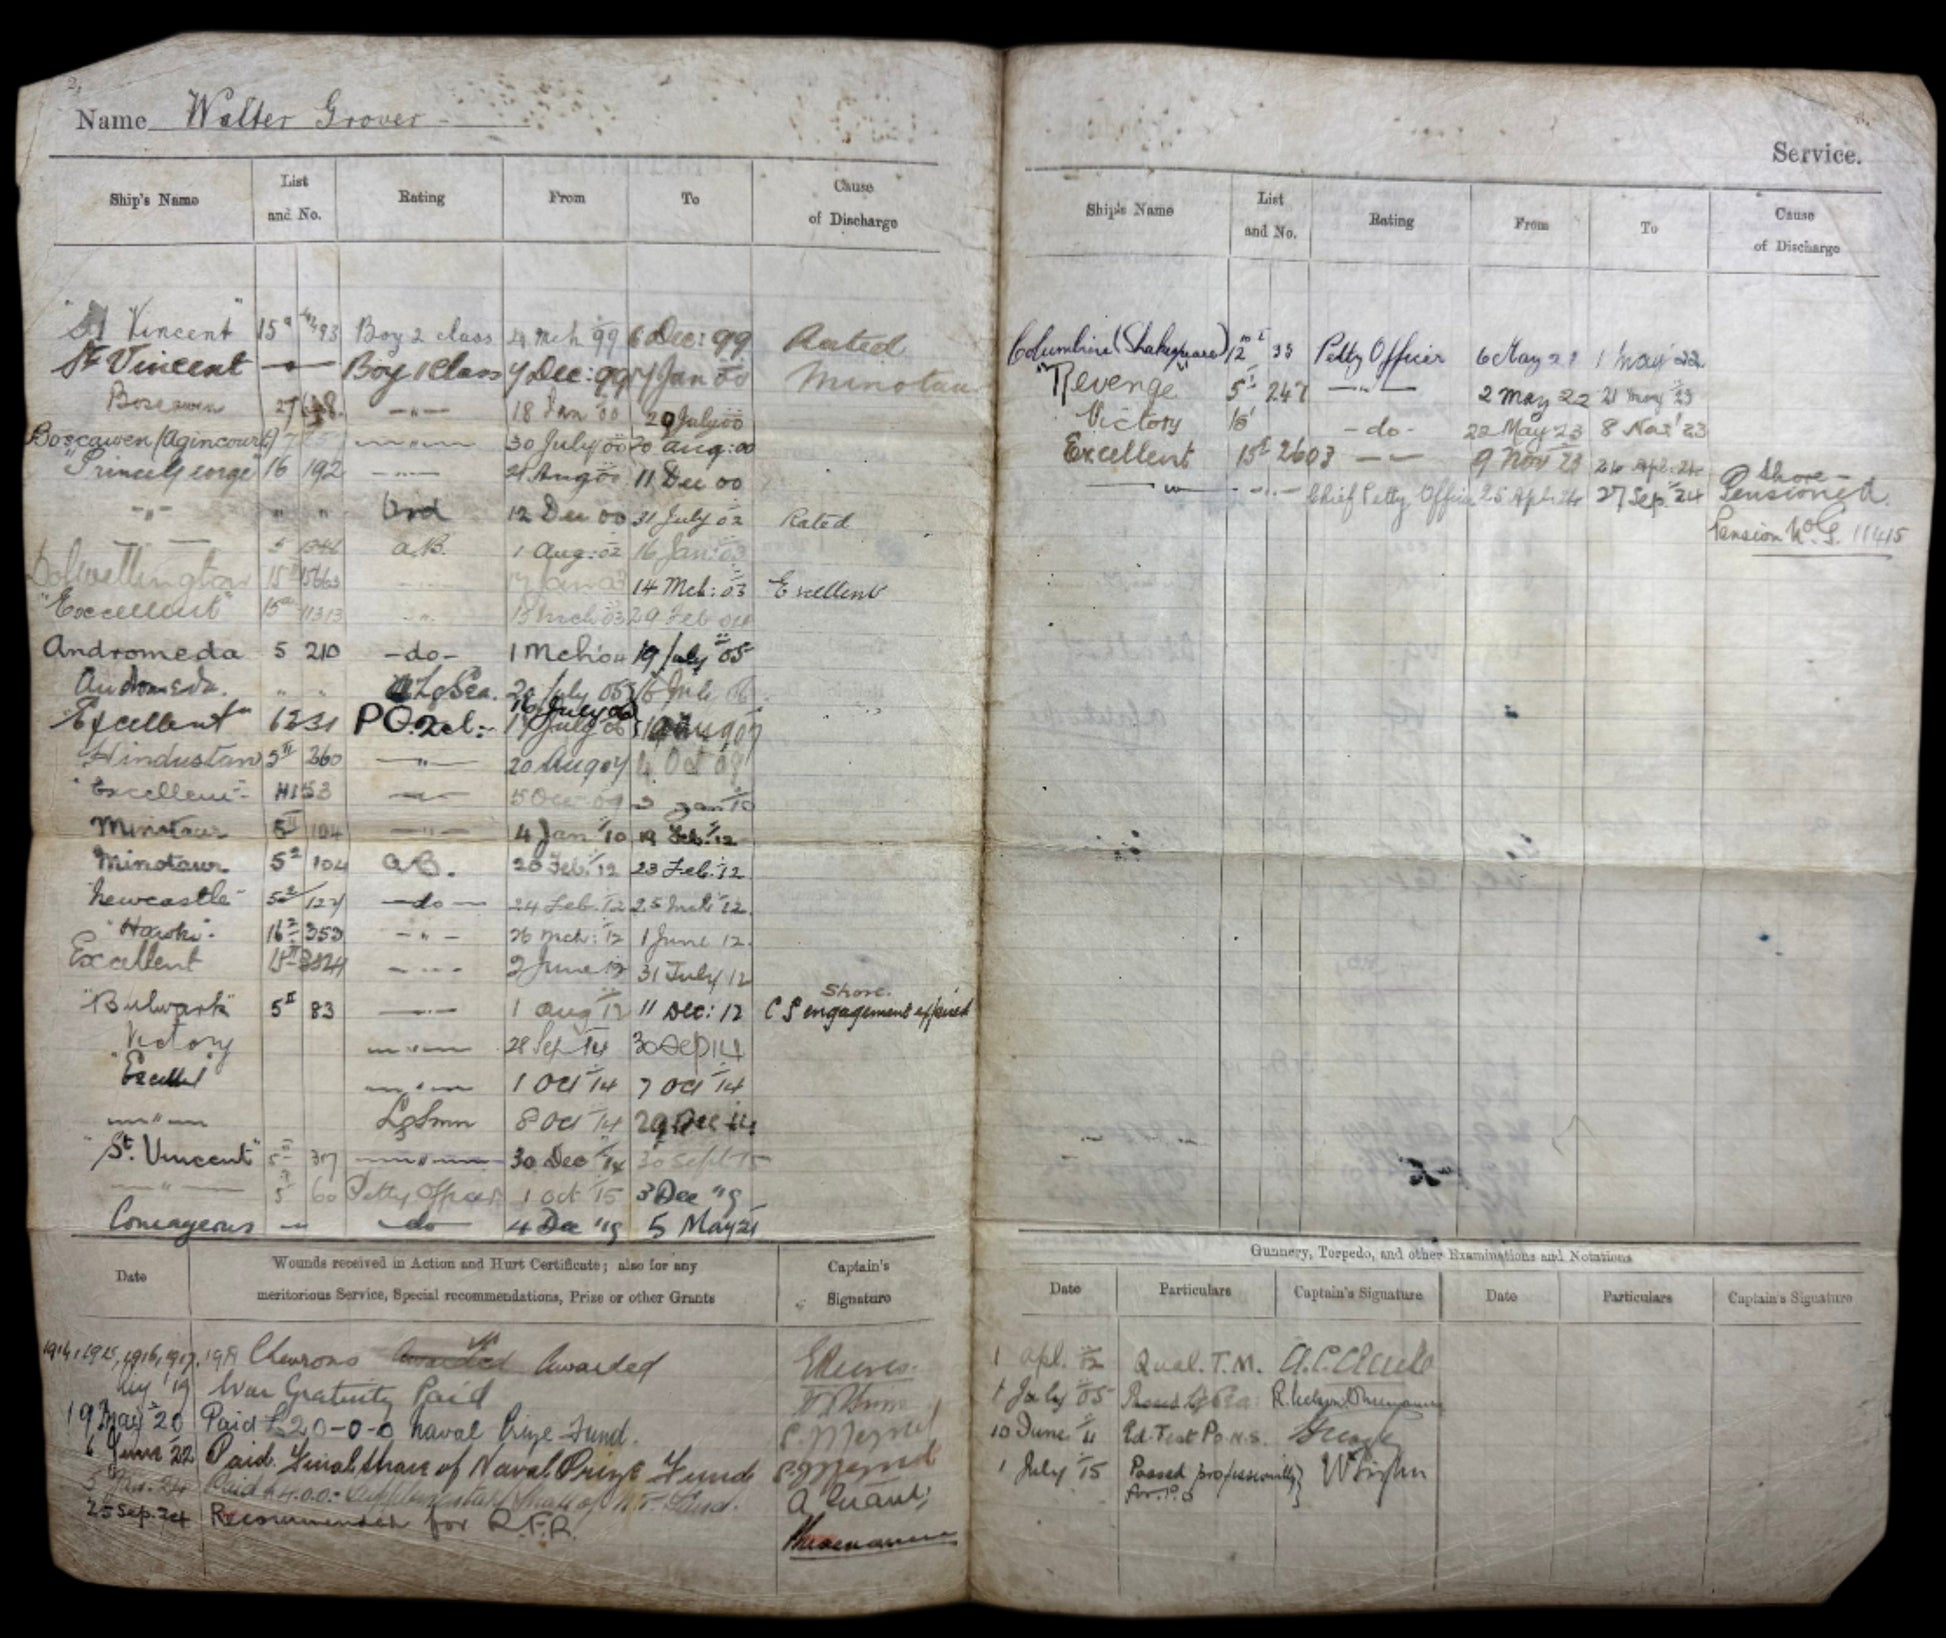 2.
Name Walter Grover
Ship's Name List and No. Rating From To Cause of Discharge
"St Vincent" 15ª 93 Boy 2 class Mch 99 6 Dec: 99 Rated
St Vincent — " — Boy 1 Class 7 Dec: 99 17 Jan 00 Minotaur
Boscawen 27 — " — 18 Jan 00 29 July 00
Boscawen (Agincourt) — " — 30 July 00 20 Aug: 00
"Prince George" 16 192 — " — 21 Aug 00 11 Dec 00
— " — " " Ord 12 Dec 00 31 July 02 Rated
— " — 5 A.B. 1 Aug: 02 16 Jan: 03
Wellington 15 17 Jan 03 14 Mch: 03 Excellent
"Excellent" 15 11313 " 15 Mch 03 29 Feb 04
Andromeda 5 210 -do- 1 Mch 04 19 July 05
Andromeda. " " Lg Sea. 20 July 05 16 July 06
"Excellent" 1231 PO. 2 cl: 17 July 06 19 Aug 07
16 July 06
Hindustan 5 II 360 — " — 20 Aug 07 4 Oct 09
"Excellent" 53 — " — 5 Oct 09 3 Jan 10
Minotaur 5 II 104 — " — 4 Jan 10 19 Feb. 12
Minotaur 5² 104 A.B. 20 Feb. 12 23 Feb. 12
"Newcastle" 5² 127 —do— 24 Feb. 12 25 Mch 12.
"Hawke" 16² 353 - " - 26 Mch: 12 1 June 12.
Excellent 15 II - " - 2 June 12 31 July 12
"Bulwark" 5 II 83 — " — 1 Aug 12 11 Dec: 12 Shore. C S engagement expired
Victory — " — 28 Sep 14 30 Sep 14
"Excellent" — " — 1 Oct 14 7 Oct 14
— " — Lg Smn 8 Oct 14 29 Dec 14
"St. Vincent" 5 II 317 — " — 30 Dec 14 30 Sept 15
— " — 5 60 Petty Officer 1 Oct 15 3 Dec "19
Courageous — " — do 4 Dec "19 5 May 21
Date Wounds received in Action and Hurt Certificate; also for any meritorious Service, Special recommendations, Prize or other Grants Captain's Signature
1914, 1915, 1916, 1917, 1918 Chevrons Awarded Awarded
'19 War Gratuity Paid
19 May '20 Paid £20-0-0 Naval Prize Fund.
6 June 22 Paid Final share of Naval Prize Fund
5 Jan. 24 Paid £4.0.0: Supplementary Share of N.P. Fund. A. Grant,
25 Sep. 24 Recommended for R.F.R.
3.
Service.
Ship's Name List and No. Rating From To Cause of Discharge
Columbine (Shakespeare) 12 33 Petty Officer 6 May 21 1 May 22
"Revenge" 5 I 247 — " — 2 May 22 21 May 23
Victory 15 - do - 22 May 23 8 Nov '23
Excellent 15 I 2603 — " — 9 Nov 23 24 Apl. 24 Shore -
— " — - " - Chief Petty Officer 25 Apl. 24 27 Sep. 24 Pensioned.
Pension No. G. 11415
Gunnery, Torpedo, and other Examinations and Notations
Date Particulars Captain's Signature Date Particulars Captain's Signature
1 Apl. 12 Qual. T.M.
1 July '05 Passed Lg Sea:
10 June 11 Ed. Test Po N.S.
1 July 15 Passed professionally
for P.O